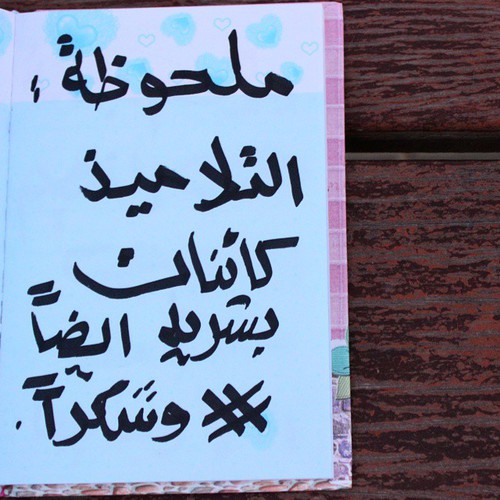 ملحوظةً :
التلاميذ
كائنات
بشرية ايضاً
# وشكراً.